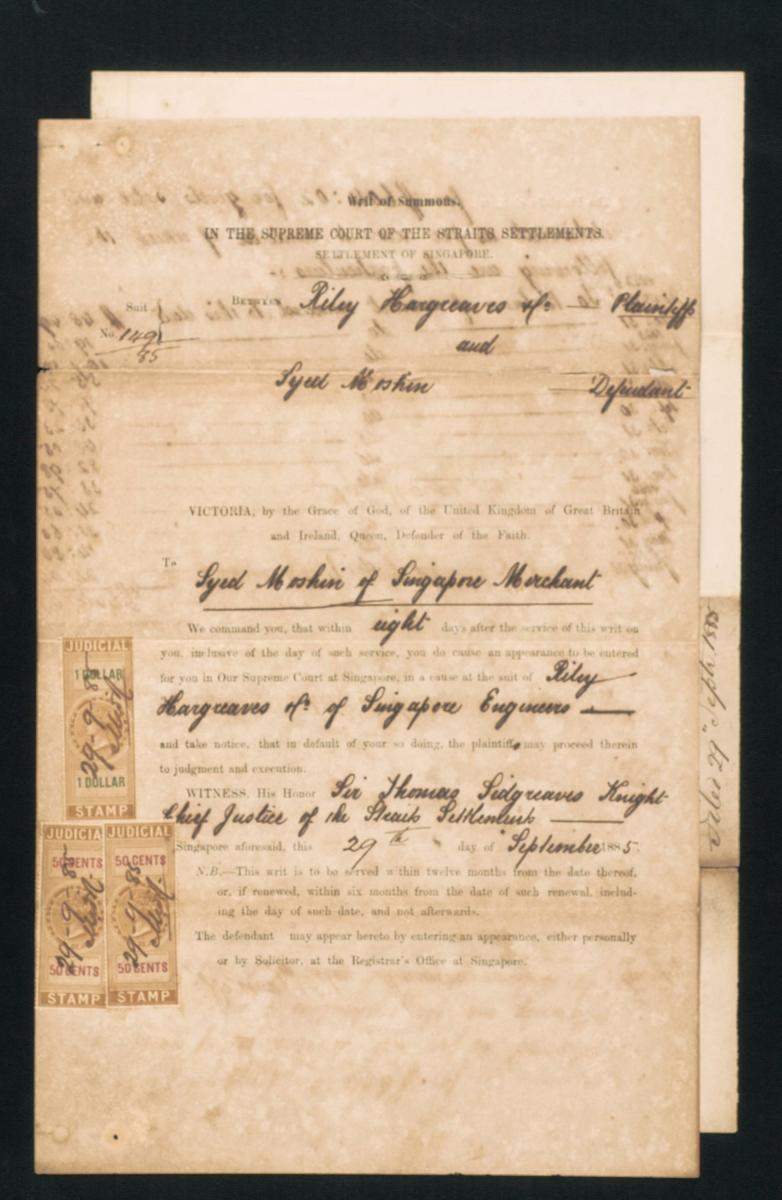 Writ of Summons.
IN THE SUPREME COURT OF THE STRAITS SETTLEMENTS.
SETTLEMENT OF SINGAPORE.
Suit
No. 149
85
BETWEEN Riley Hargreaves & Co — Plaintiff
and
Syed Moshin — Defendant
VICTORIA, by the Grace of God, of the United Kingdom of Great Britain
and Ireland, Queen, Defender of the Faith.
To
Syed Moshin of Singapore Merchant
We command you, that within eight days after the service of this writ on
you, inclusive of the day of such service, you do cause an appearance to be entered
for you in Our Supreme Court at Singapore, in a cause at the suit of Riley
Hargreaves & Co of Singapore Engineers —
and take notice, that in default of your so doing, the plaintiffs may proceed therein
to judgment and execution.
WITNESS, His Honor Sir Thomas Sidgreaves Knight
Chief Justice of the Straits Settlements —
Singapore aforesaid, this 29th day of September 1885.
N.B.—This writ is to be served within twelve months from the date thereof,
or, if renewed, within six months from the date of such renewal, includ-
ing the day of such date, and not afterwards.
The defendant may appear hereto by entering an appearance, either personally
or by Solicitor, at the Registrar's Office at Singapore.
JUDICIAL
1 DOLLAR
29-9-85
1 DOLLAR
STAMP
JUDICIAL
50 CENTS
29-9-85
50 CENTS
STAMP
JUDICIAL
50 CENTS
29-9-85
50 CENTS
STAMP
Filed 29th Sept. 1885